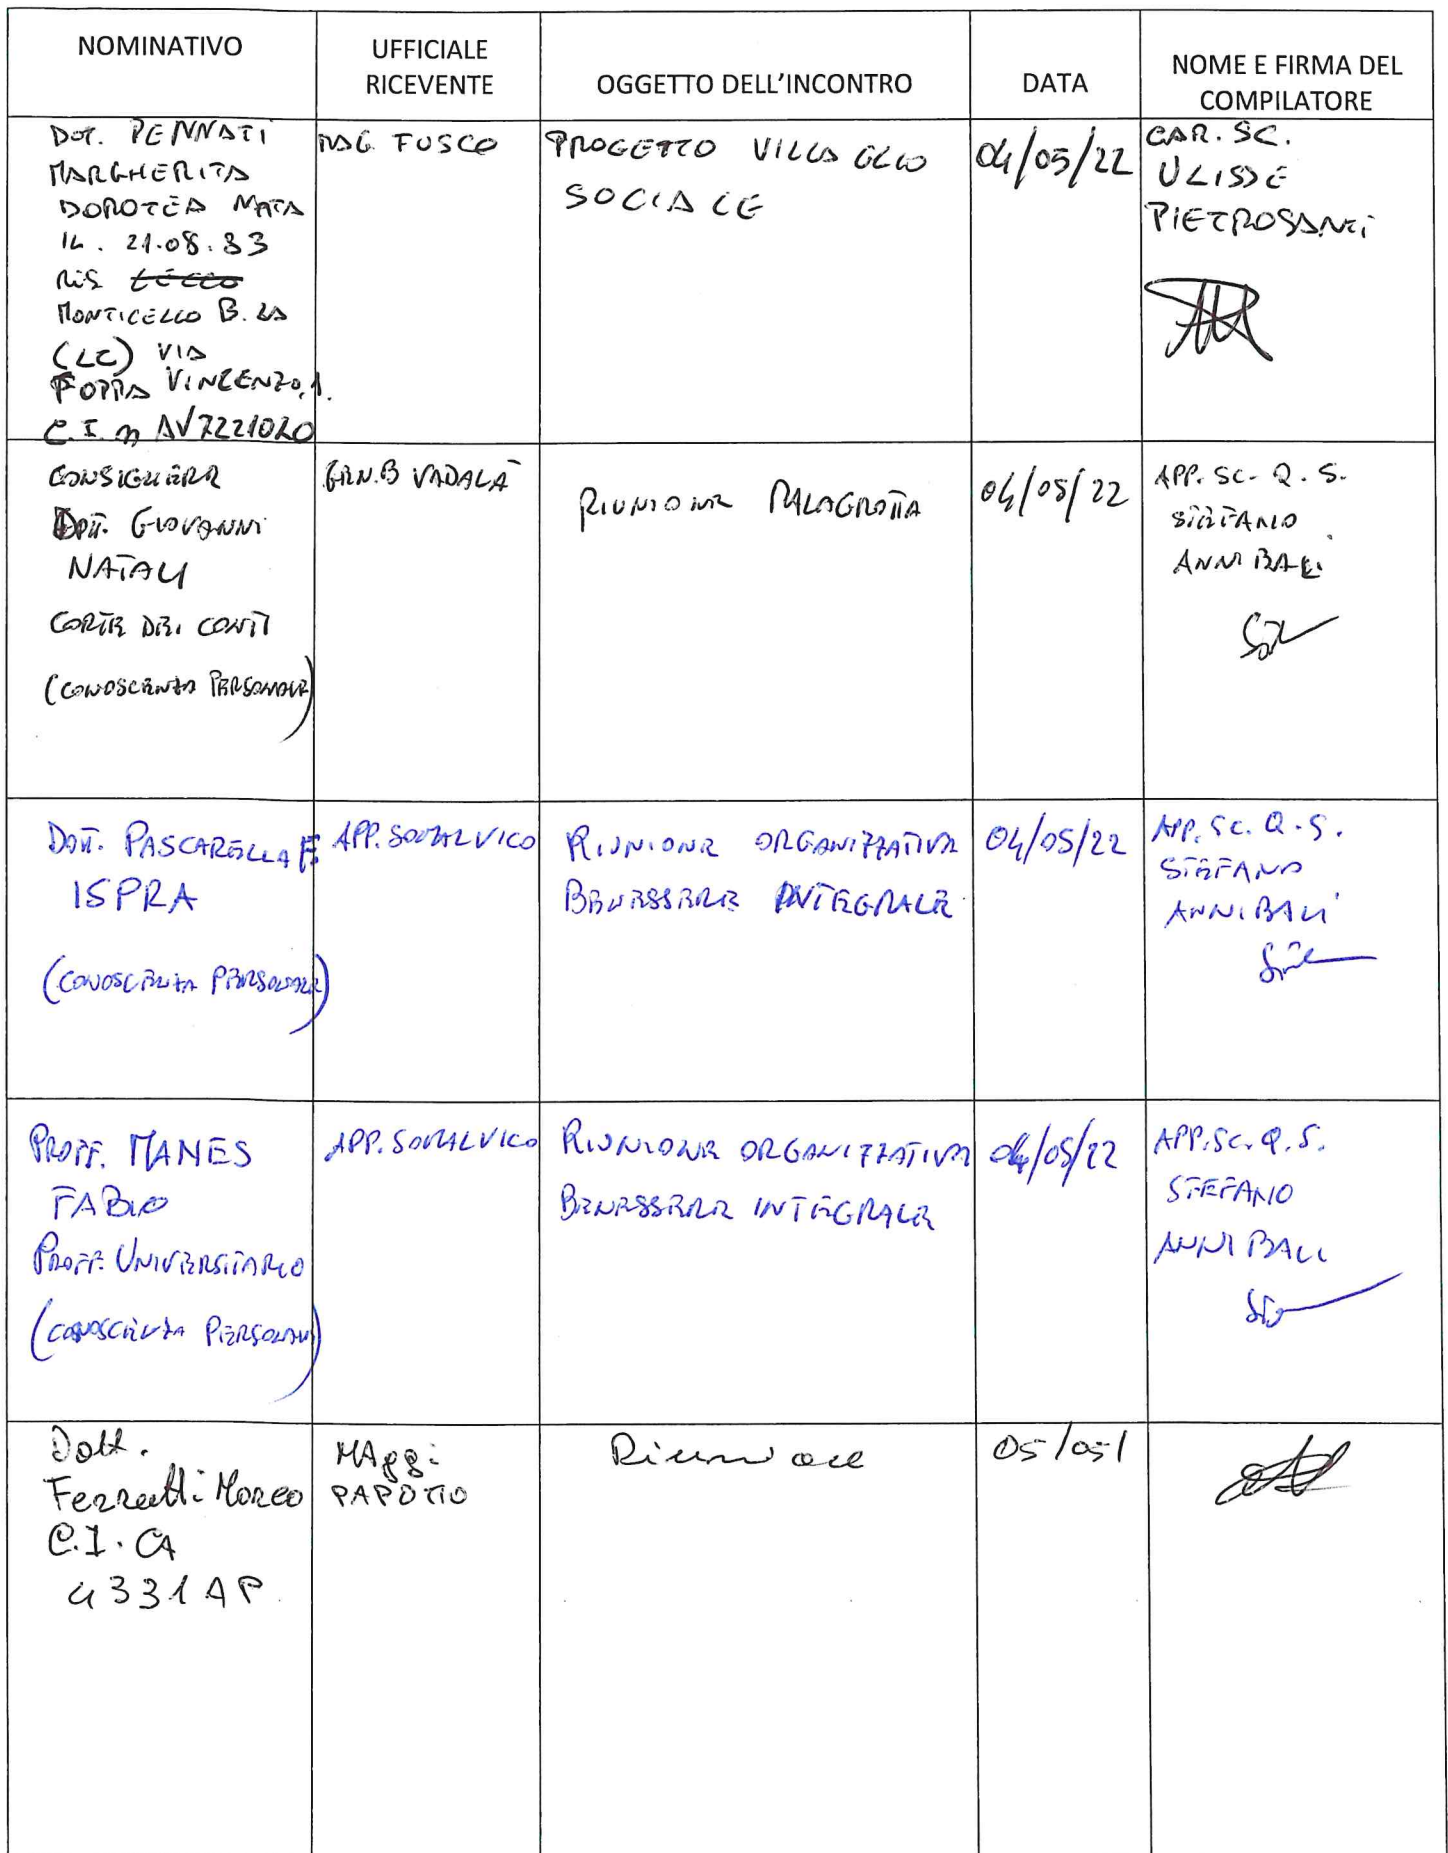 NOMINATIVO
UFFICIALE
RICEVENTE
OGGETTO DELL'INCONTRO
DATA
NOME E FIRMA DEL
COMPILATORE
DOT. PENNATI
MARGHERITA
DOROTEA NATA
IL. 21.08.83
RIS LECCO
MONTICELLO B. ZA
(LC) VIA
FOPPA VINCENZO, 1.
C.I. n AV7221020
MAG. FUSCO
PROGETTO VILLAGGIO
SOCIALE
04/05/22
CAR. SC.
ULISSE
PIETROSANTI
CONSIGLIERE
DOTT. GIOVANNI
NATALI
CORTE DEI CONTI
(CONOSCENZA PERSONALE)
GEN.B VADALÀ
RIUNIONE MALAGROTTA
04/05/22
APP. SC. Q. S.
STEFANO
ANNIBALI
DOTT. PASCARELLA F
ISPRA
(CONOSCENZA PERSONALE)
APP. SOMALVICO
RIUNIONE ORGANIZZATIVA
BENESSERE INTEGRALE
04/05/22
APP. SC. Q. S.
STEFANO
ANNIBALI
PROFF. MANES
FABIO
PROFF. UNIVERSITARIO
(CONOSCENZA PERSONALE)
APP. SOMALVICO
RIUNIONE ORGANIZZATIVA
BENESSERE INTEGRALE
04/05/22
APP. SC. Q. S.
STEFANO
ANNIBALI
Dott.
Ferretti Marco
C.I. CA
4331AP
MAgg:
PAPOTTO
Riunione
05/05/